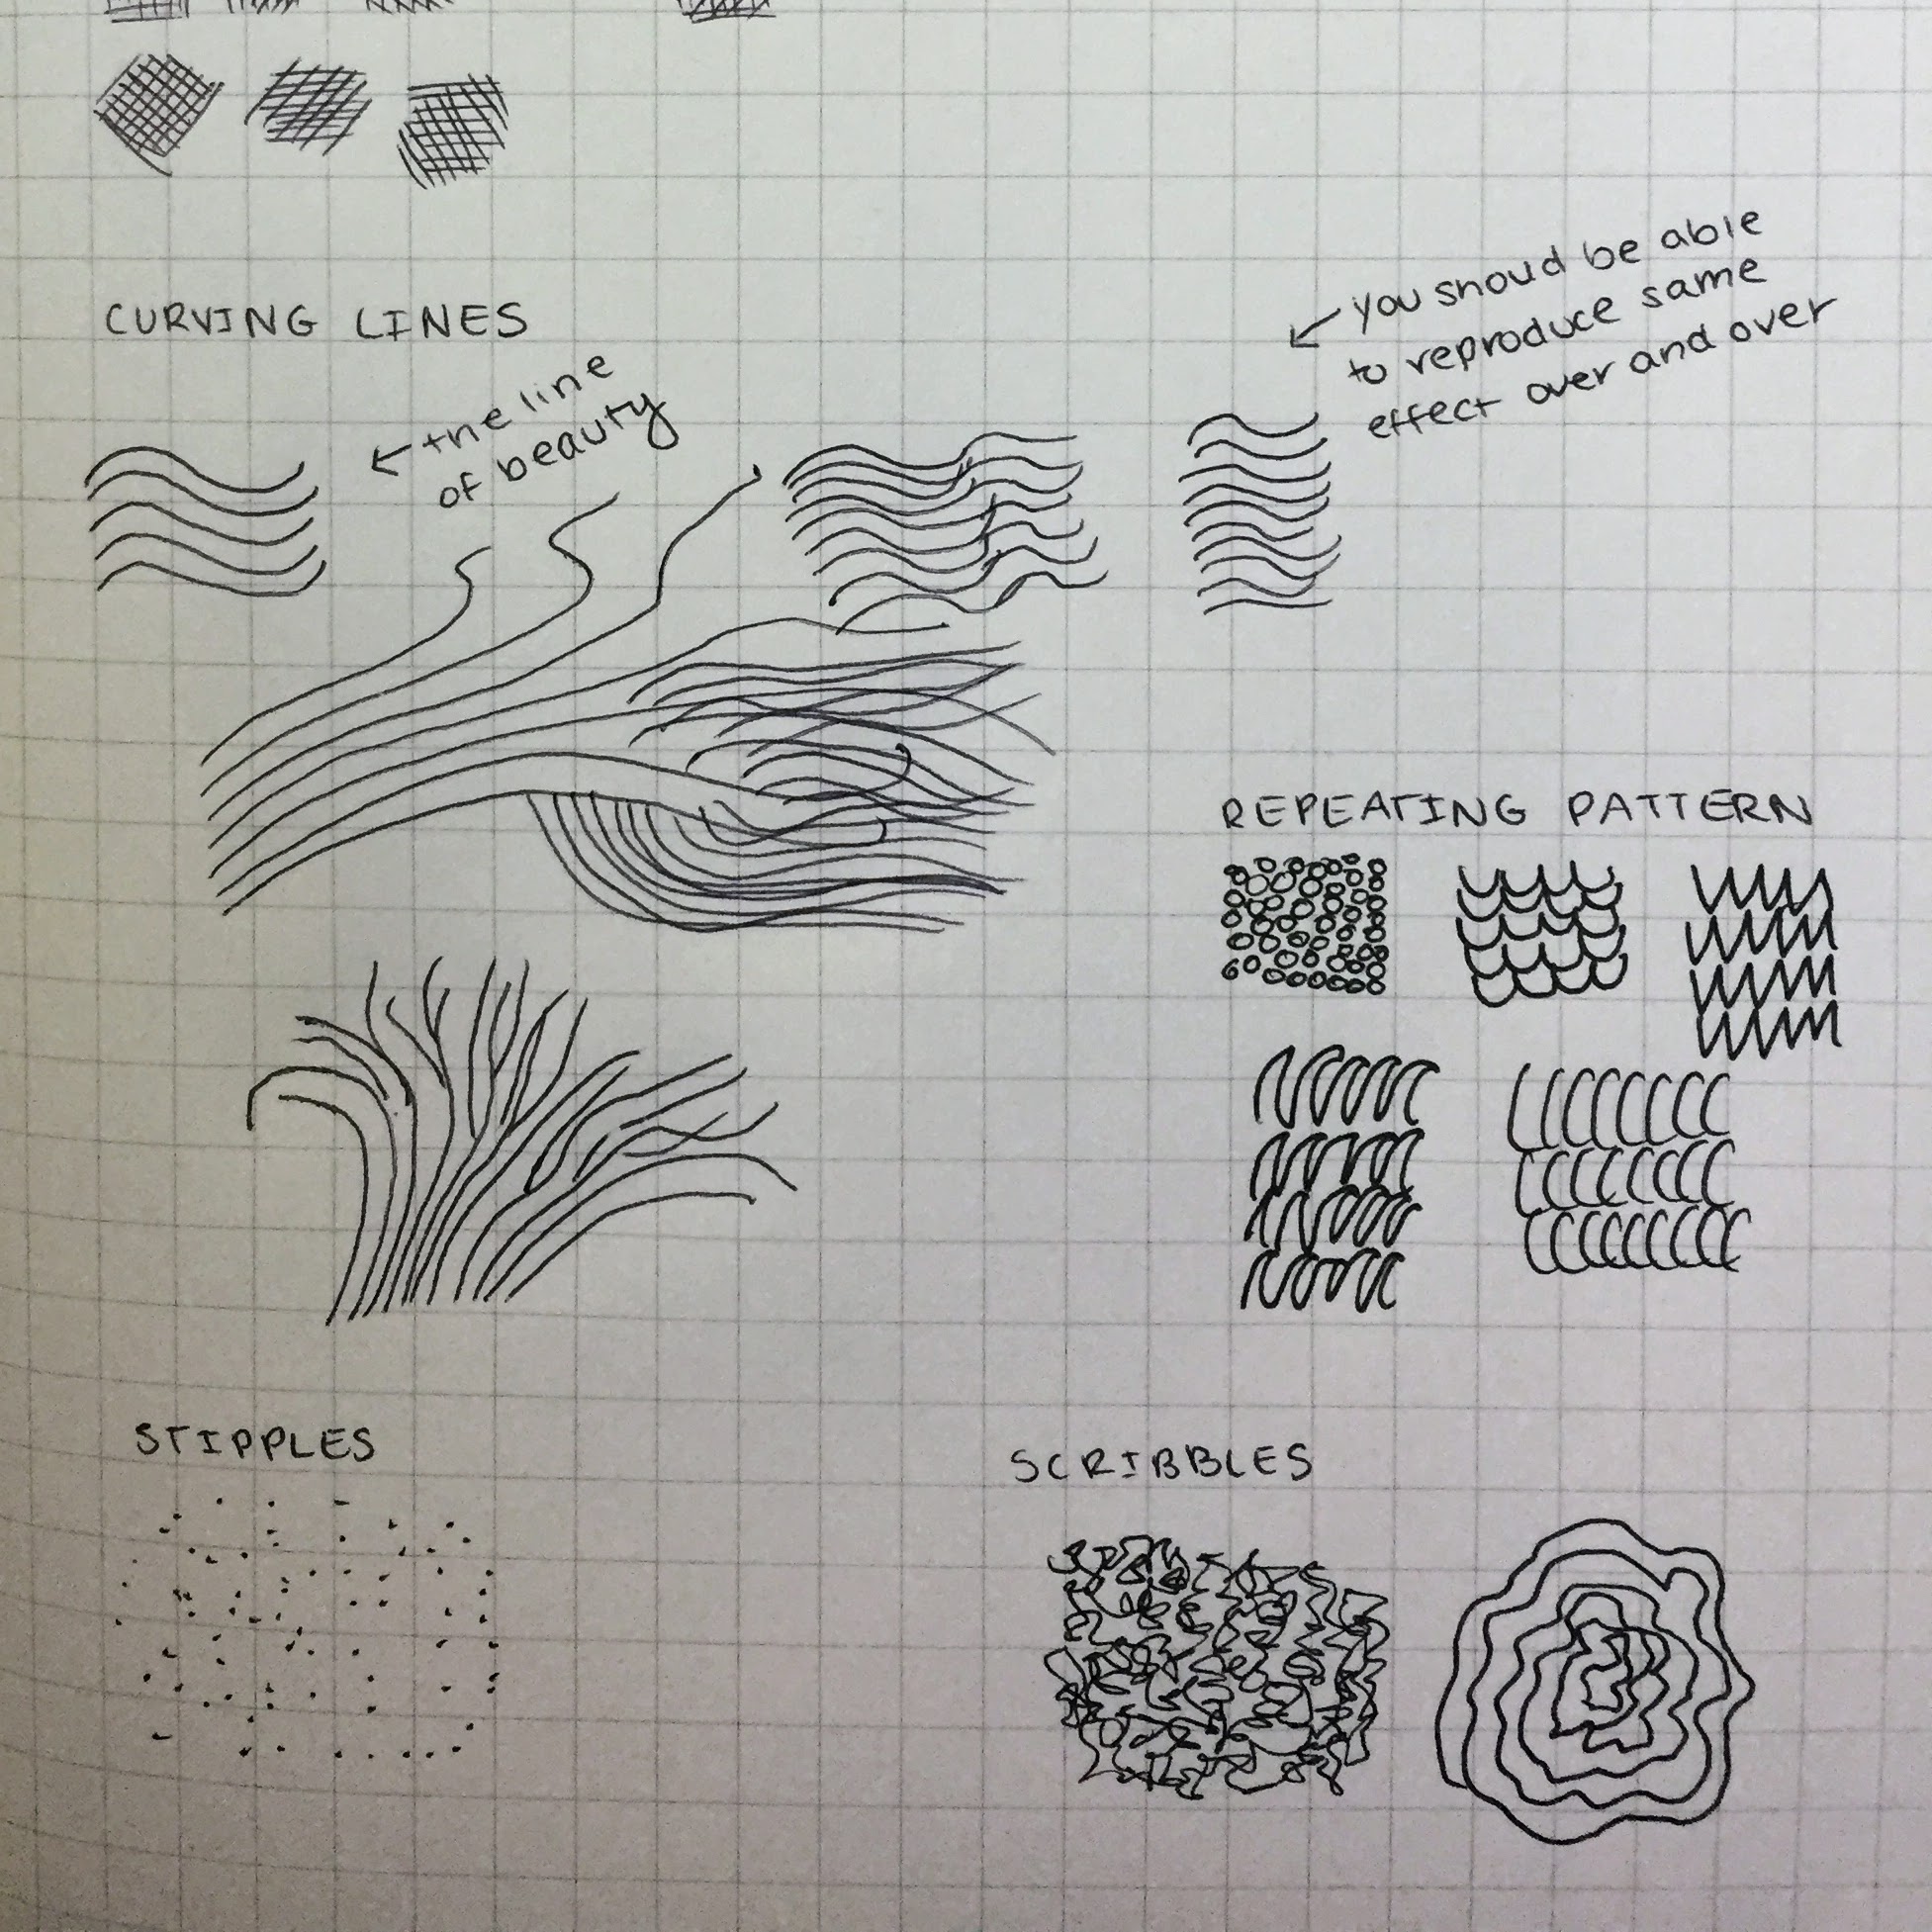 CURVING LINES
← the line
of beauty
← you shoud be able
to reproduce same
effect over and over
REPEATING PATTERN
STIPPLES
SCRIBBLES